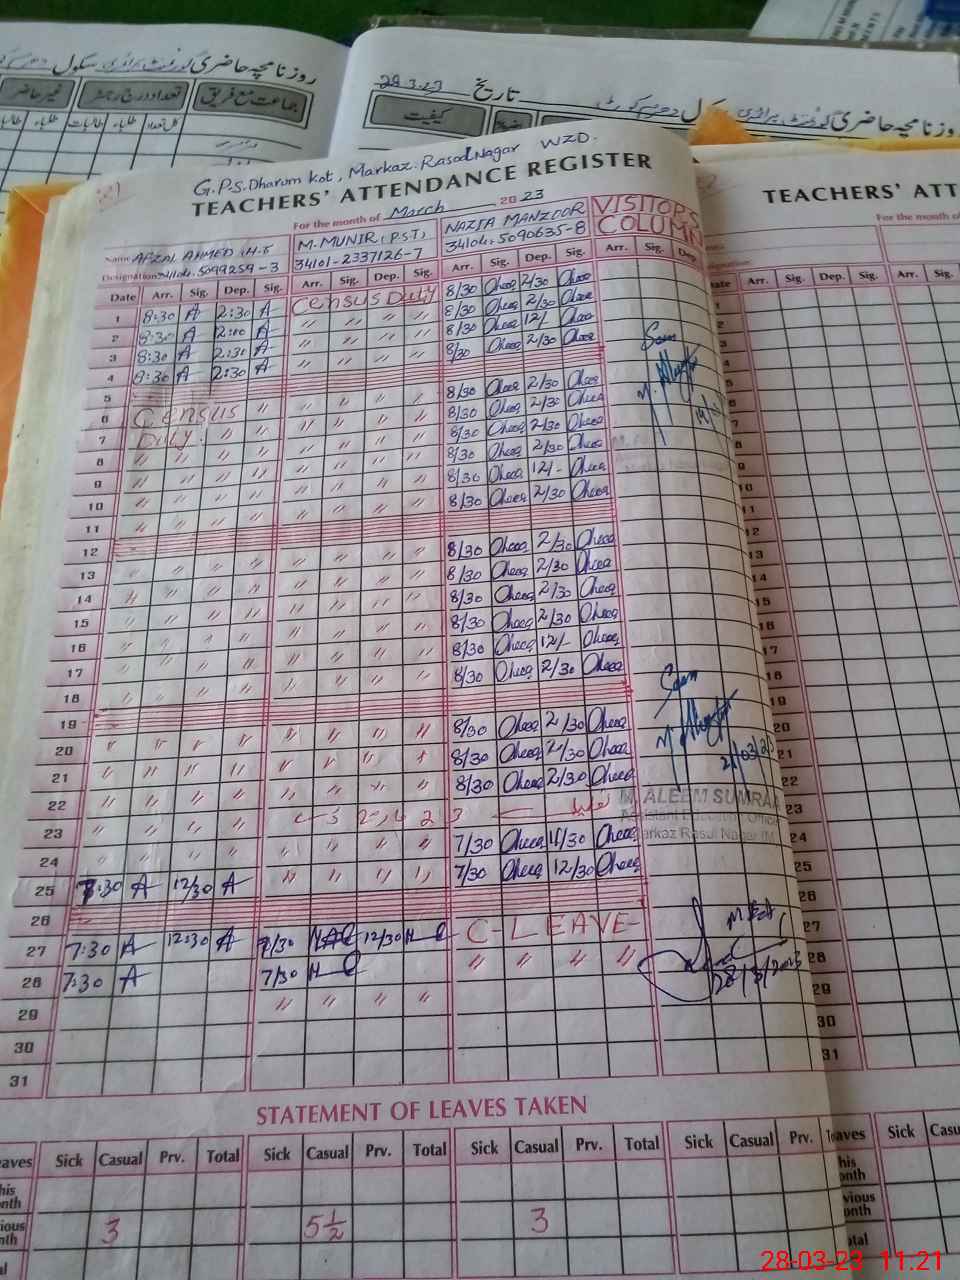 روزنامچہ حاضری گورنمنٹ پرائمری سکول
غیر حاضر
تعداد درج رجسٹر
جماعت مع فریق
طلباء
طالبات
طلباء
کل تعداد
28.3.23 تاریخ
روزنامچہ حاضری گورنمنٹ پرائمری سکول دھرم کوٹ
کیفیت
G.P.S. Dharum Kot, Markaz: Rasool Nagar WZD.
TEACHERS' ATTENDANCE REGISTER
For the month of March 2023
VISITORS COLUMN
Name AFZAL AHMED, H.T
M. MUNIR, (P.S.T)
NAZIA MANZOOR
Designation 34104-5099259-3
34101-2337126-7
34104-5090635-8
Date Arr. Sig. Dep. Sig. Arr. Sig. Dep. Sig. Arr. Sig. Dep. Sig. Arr. Sig. Dep.
1 8:30 A 2:30 A Census Duty 8/30 2/30
2 8:30 A 2:30 A " " " " 8/30 2/30
3 8:30 A 2:30 A " " " " 8/30 12/-
4 8:30 A 2:30 A " " " " 8/30 2/30
5
6 Census " " " " " 8/30 2/30
7 Duty " " " " " " 8/30 2/30
8 " " " " " " " " 8/30 2/30
9 " " " " " " " " 8/30 2/30
10 " " " " " " " " 8/30 12/-
11 " " " " " " " " 8/30 2/30
12
13 " " " " " " " " 8/30 2/30
14 " " " " " " " " 8/30 2/30
15 " " " " " " " " 8/30 2/30
16 " " " " " " " " 8/30 2/30
17 " " " " " " " " 8/30 12/-
18 " " " " " " " " 8/30 2/30
19
20 " " " " " " " " 8/30 2/30
21 " " " " " " " " 8/30 2/30
22 " " " " " " " " 8/30 2/30
23 " " " "
24 " " " " " " " " 7/30 11/30
25 7:30 A 12/30 A " " " " 7/30 12/30
26
27 7:30 A 12:30 A 7/30 12/30 C-LEAVE-
28 7:30 A 7/30 " " " "
29 " " " "
30
31
21/03/23
M. ALEEM SUMRA
Assistant Education Officer
Markaz Rasul Nagar (M)
28/3/2023
STATEMENT OF LEAVES TAKEN
Leaves Sick Casual Prv. Total Sick Casual Prv. Total Sick Casual Prv. Total Sick Casual Prv. Total
This month
Previous month 3 5½ 3
Total
TEACHERS' ATT
For the month of
Date Arr. Sig. Dep. Sig. Arr. Sig.
1
2
3
4
5
6
7
8
9
10
11
12
13
14
15
16
17
18
19
20
21
22
23
24
25
26
27
28
29
30
31
Leaves Sick Casu
This month
Previous month
Total
28-03-23 11.21